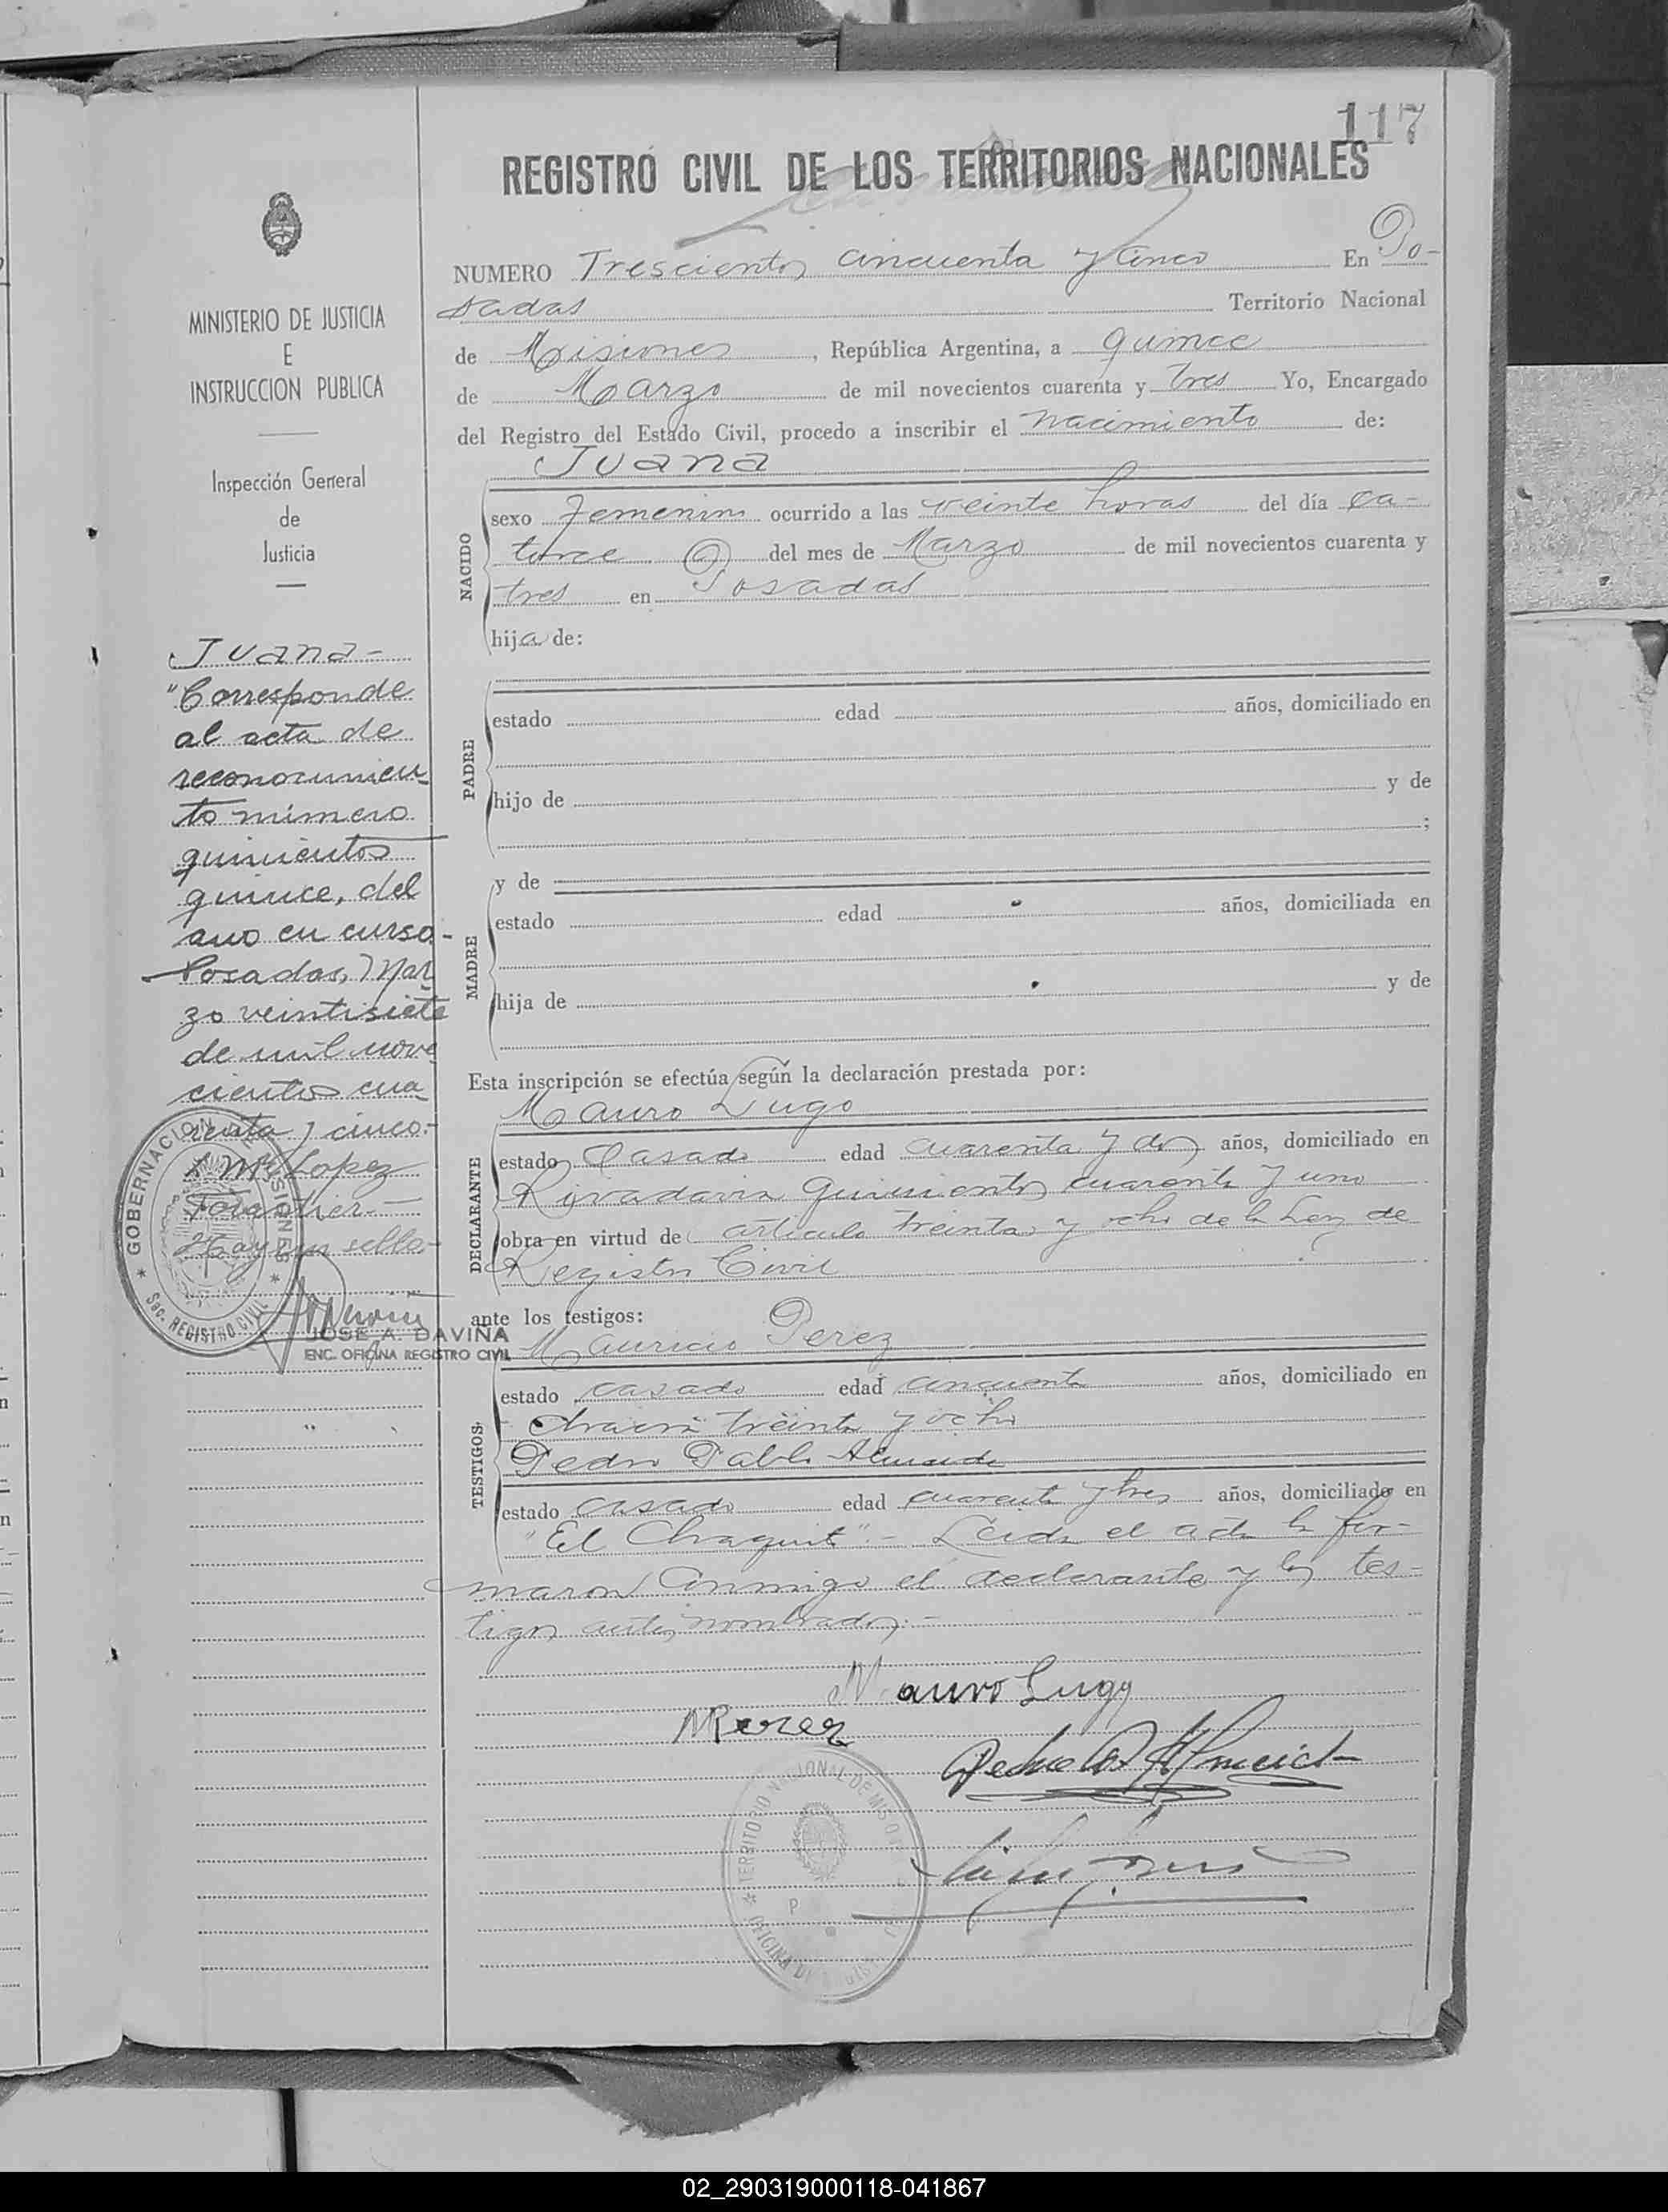 117
REGISTRO CIVIL DE LOS TERRITORIOS NACIONALES
NUMERO Trescientos cincuenta y cinco En Po-
sadas Territorio Nacional
de Misiones, República Argentina, a quince
de Marzo de mil novecientos cuarenta y tres Yo, Encargado
del Registro del Estado Civil, procedo a inscribir el nacimiento de:
Juana
NACIDO
sexo Femenino ocurrido a las veinte horas del día ca-
torce del mes de Marzo de mil novecientos cuarenta y
tres en Posadas
hija de:
PADRE
estado edad años, domiciliado en
hijo de y de
;
MADRE
y de
estado edad años, domiciliada en
hija de y de
Esta inscripción se efectúa según la declaración prestada por:
DECLARANTE
Mauro Lugo
estado Casado edad cuarenta y dos años, domiciliado en
Rivadavia quinientos cuarenta y uno
obra en virtud de articulo treinta y ocho de la Ley de
Registro Civil
ante los testigos:
TESTIGOS
Mauricio Perez
estado casado edad cincuenta años, domiciliado en
treinta y ocho
Pedro Pablo Almeida
estado casado edad cuarenta y tres años, domiciliado en
"El Chaquito".- Leida el acta la fir-
maron conmigo el declarante y los tes-
tigos antes nombrados.-
Mauro Lugo
MPerez
Almeida
TERRITORIO NACIONAL DE MISIONES
OFICINA DE
MINISTERIO DE JUSTICIA
E
INSTRUCCION PUBLICA
Inspección General
de
Justicia
Juana-
"Corresponde
al acta de
reconocimien-
to número
quinientos
quince, del
año en curso.-
Posadas, Mar
zo veintisiete
de mil nove
cientos cua
renta y cinco.-
Lopez
Forastier.-
Hay un sello.-
GOBERNACION MISIONES
Sec. REGISTRO CIVIL
JOSE A. DAVIÑA
ENC. OFICINA REGISTRO CIVIL
02_290319000118-041867